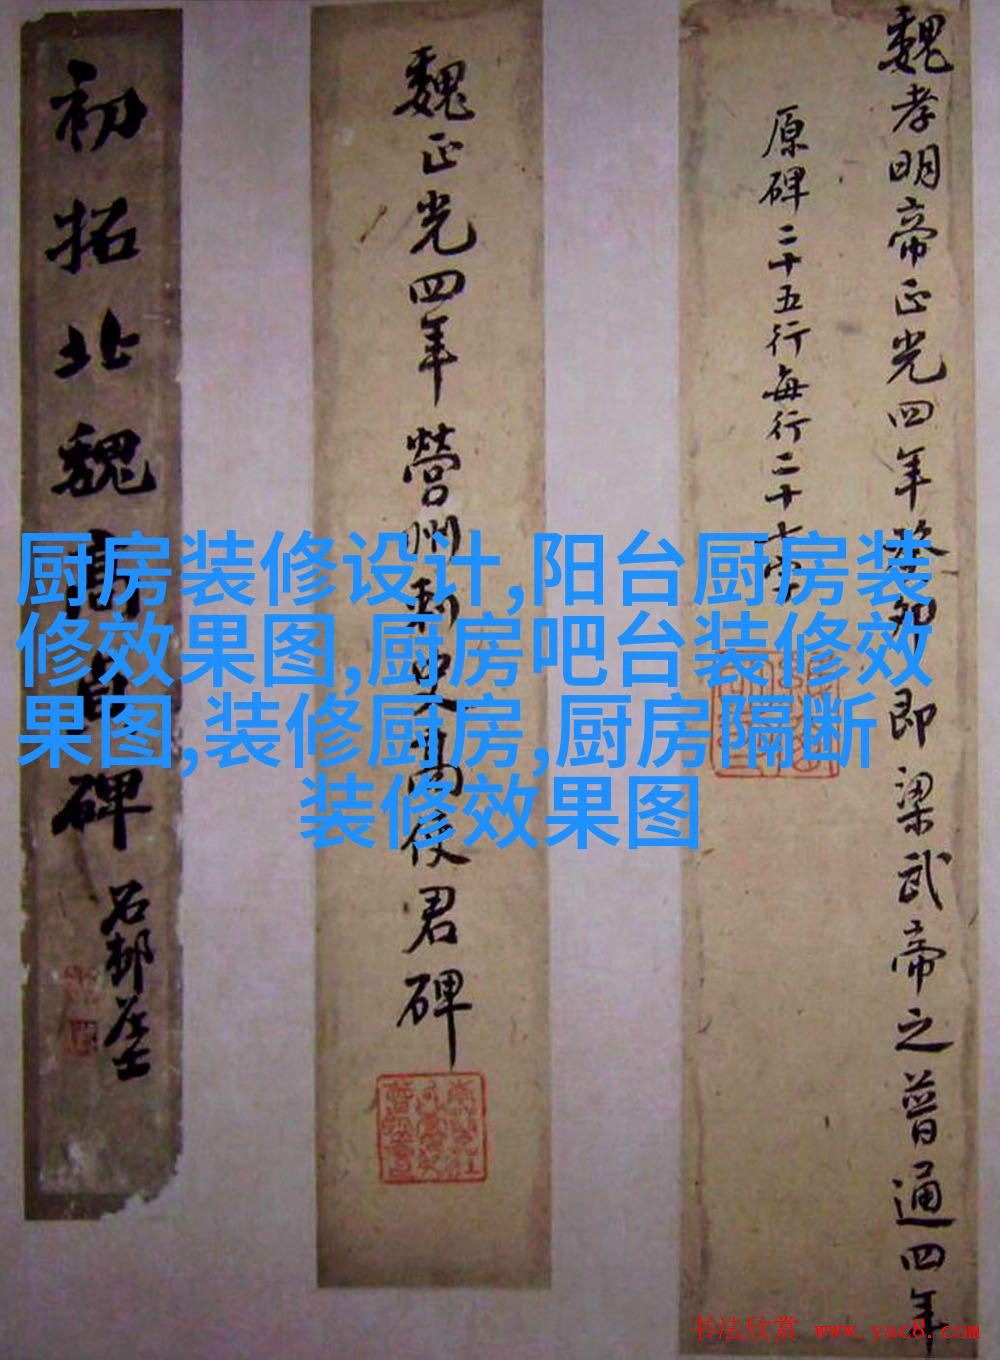 魏孝明帝正光四年癸卯即梁武帝之普通四年
原碑二十五行每行二十七字
魏正光四年營州刺史高使君碑
初拓北魏高貞碑
石邨居士
厨房装修设计,阳台厨房装
修效果图,厨房吧台装修效
果图,装修厨房,厨房隔断
装修效果图
书法欣赏 www.yac8.com